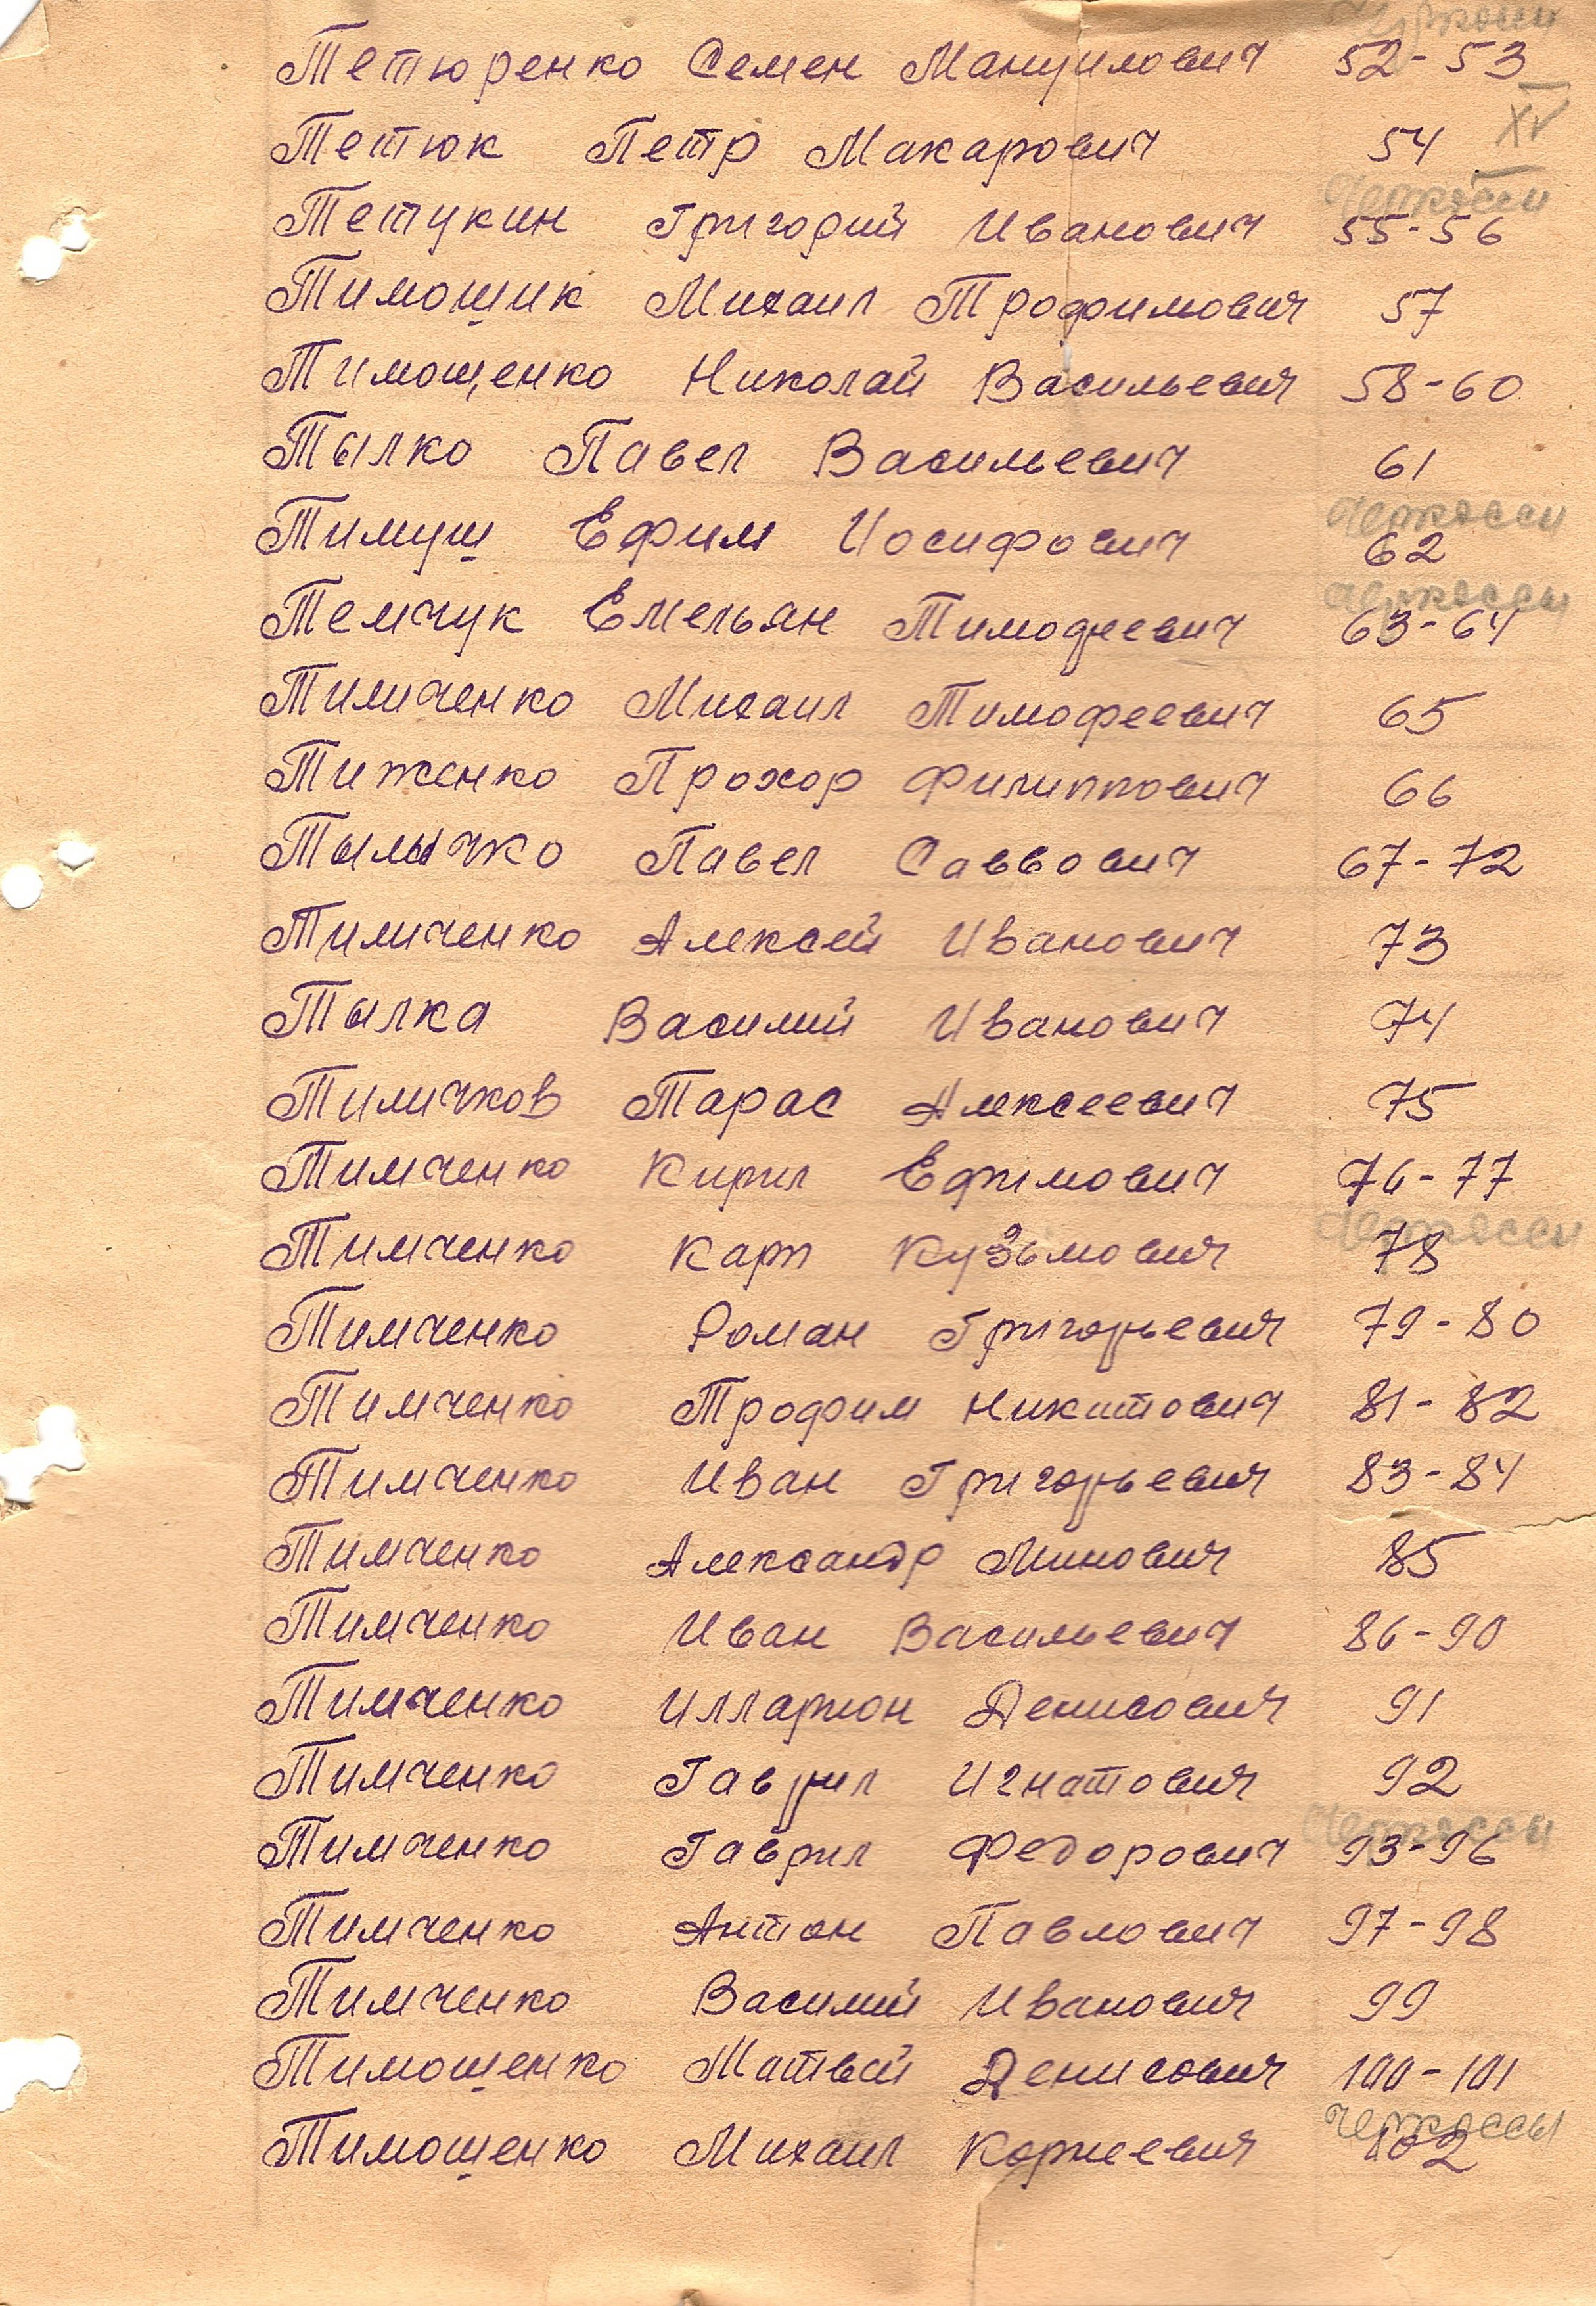 Черкассы
Тетюренко Семен Мануилович 52-53
XV
Тетюк Петр Макарович 54
Черкассы
Тетукин Григорий Иванович 55-56
Тимошик Михаил Трофимович 57
Тимощенко Николай Васильевич 58-60
Тылко Павел Васильевич 61
Черкассы
Тимуш Ефим Иосифович 62
Черкассы
Темчук Емельян Тимофеевич 63-64
Тимиченко Михаил Тимофеевич 65
Тиженко Прохор Филиппович 66
Тылычко Павел Саввович 67-72
Тимиченко Алексей Иванович 73
Тылка Василий Иванович 74
Тимичков Тарас Алексеевич 75
Тимченко Кирил Ефимович 76-77
Черкассы
Тимченко Карп Кузьмович 78
Тимченко Роман Григорьевич 79-80
Тимченко Трофим Никитович 81-82
Тимченко Иван Григорьевич 83-84
Тимченко Александр Минович 85
Тимченко Иван Васильевич 86-90
Тимченко Илларион Денисович 91
Тимченко Гаврил Игнатович 92
Черкассы
Тимченко Гаврил Федорович 93-96
Тимченко Антон Павлович 97-98
Тимченко Василий Иванович 99
Тимошенко Матвей Денисович 100-101
Черкассы
Тимошенко Михаил Корнеевич 102